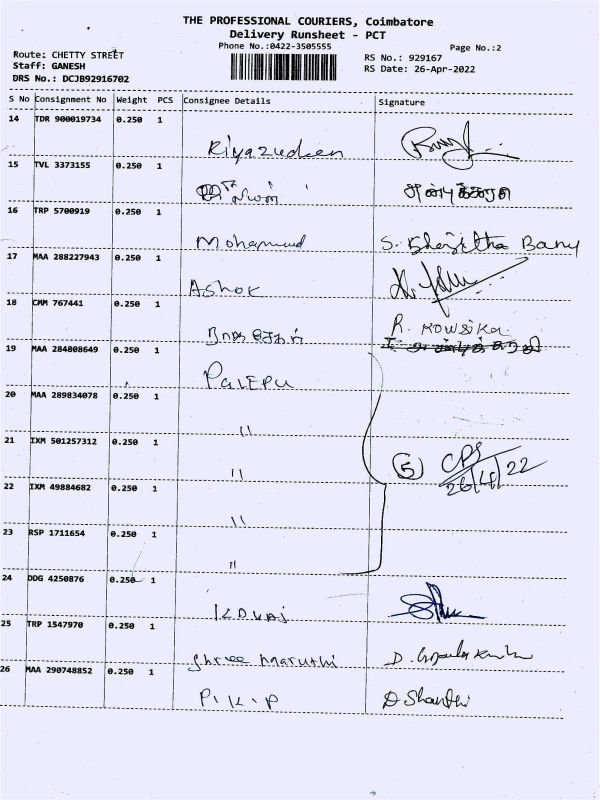 THE PROFESSIONAL COURIERS, Coimbatore
Delivery Runsheet - PCT
Phone No.:0422-3505555
Page No.:2
Route: CHETTY STREET
Staff: GANESH
DRS No.: DCJB92916702
RS No.: 929167
RS Date: 26-Apr-2022
S No Consignment No Weight PCS Consignee Details Signature
14 TDR 900019734 0.250 1
Riyazudeen
15 TVL 3373155 0.250 1
16 TRP 5700919 0.250 1
Mohammed S. Banu
17 MAA 288227943 0.250 1
Ashok
18 CMM 767441 0.250 1
R. Kowsika
19 MAA 284808649 0.250 1
PALEPU
20 MAA 289834078 0.250 1
"
21 IXM 501257312 0.250 1
" 5 CPS
26/4/22
22 IXM 49884682 0.250 1
"
23 RSP 1711654 0.250 1
"
24 DDG 4250876 0.250 1
25 TRP 1547970 0.250 1
Shree maruthi D.
26 MAA 290748852 0.250 1
P.K.P D Shanthi